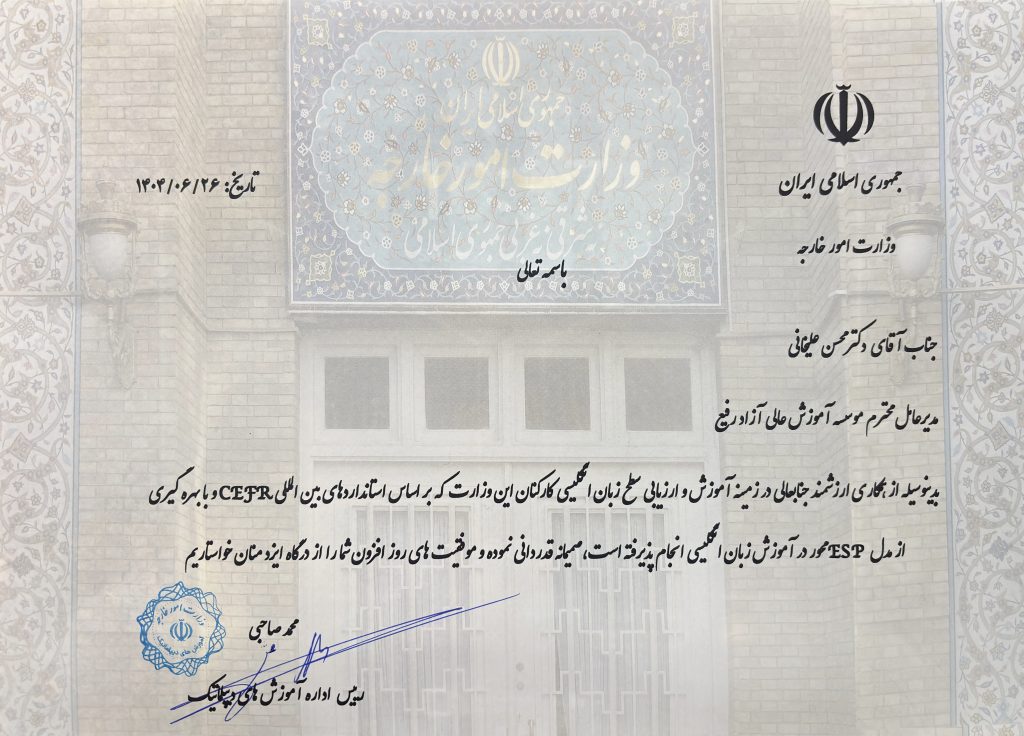 جمهوری اسلامی ایران
وزارت امور خارجه
نه شرقی نه غربی جمهوری اسلامی
جمهوری اسلامی ایران
تاریخ: ۱۴۰۴/۰۶/۲۶
وزارت امور خارجه
باسمه تعالی
جناب آقای دکتر محسن علیخانی
مدیرعامل محترم موسسه آموزش عالی آزاد رفیع
بدینوسیله از همکاری ارزشمند جنابعالی در زمینه آموزش و ارزیابی سطح زبان انگلیسی کارکنان این وزارت که بر اساس استانداردهای بین المللی CEFR و با بهره گیری
از مدل ESP محور در آموزش زبان انگلیسی انجام پذیرفته است، صمیمانه قدردانی نموده و موفقیت های روز افزون شما را از درگاه ایزد منان خواستاریم
محمد صاحبی
رییس اداره آموزش های دیپلماتیک
وزارت امور خارجه
آموزش های دیپلماتیک